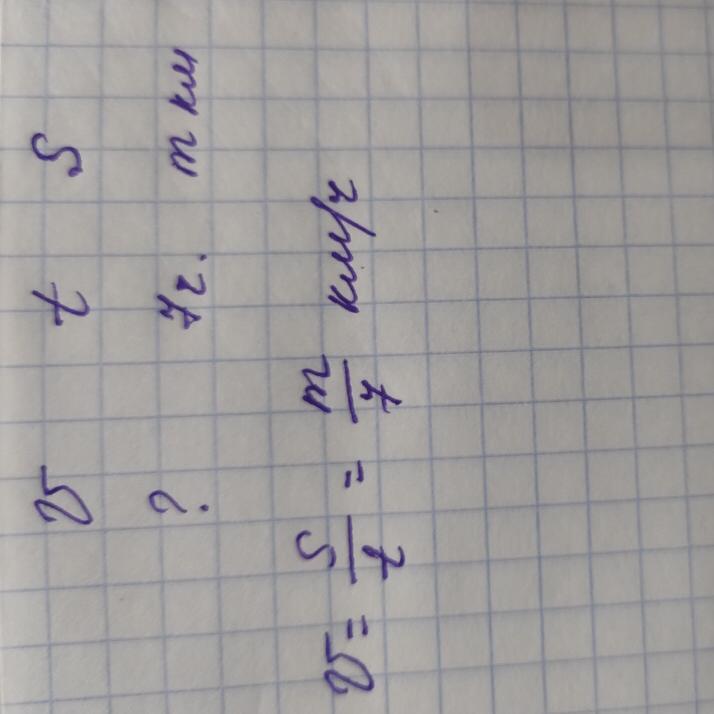 v t S
? 7 ч. m км
v = S/t = m/7 км/ч